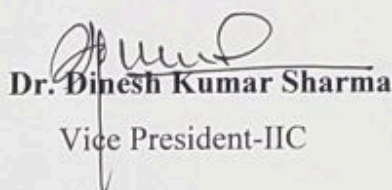 Dr. Dinesh Kumar Sharma
Vice President-IIC